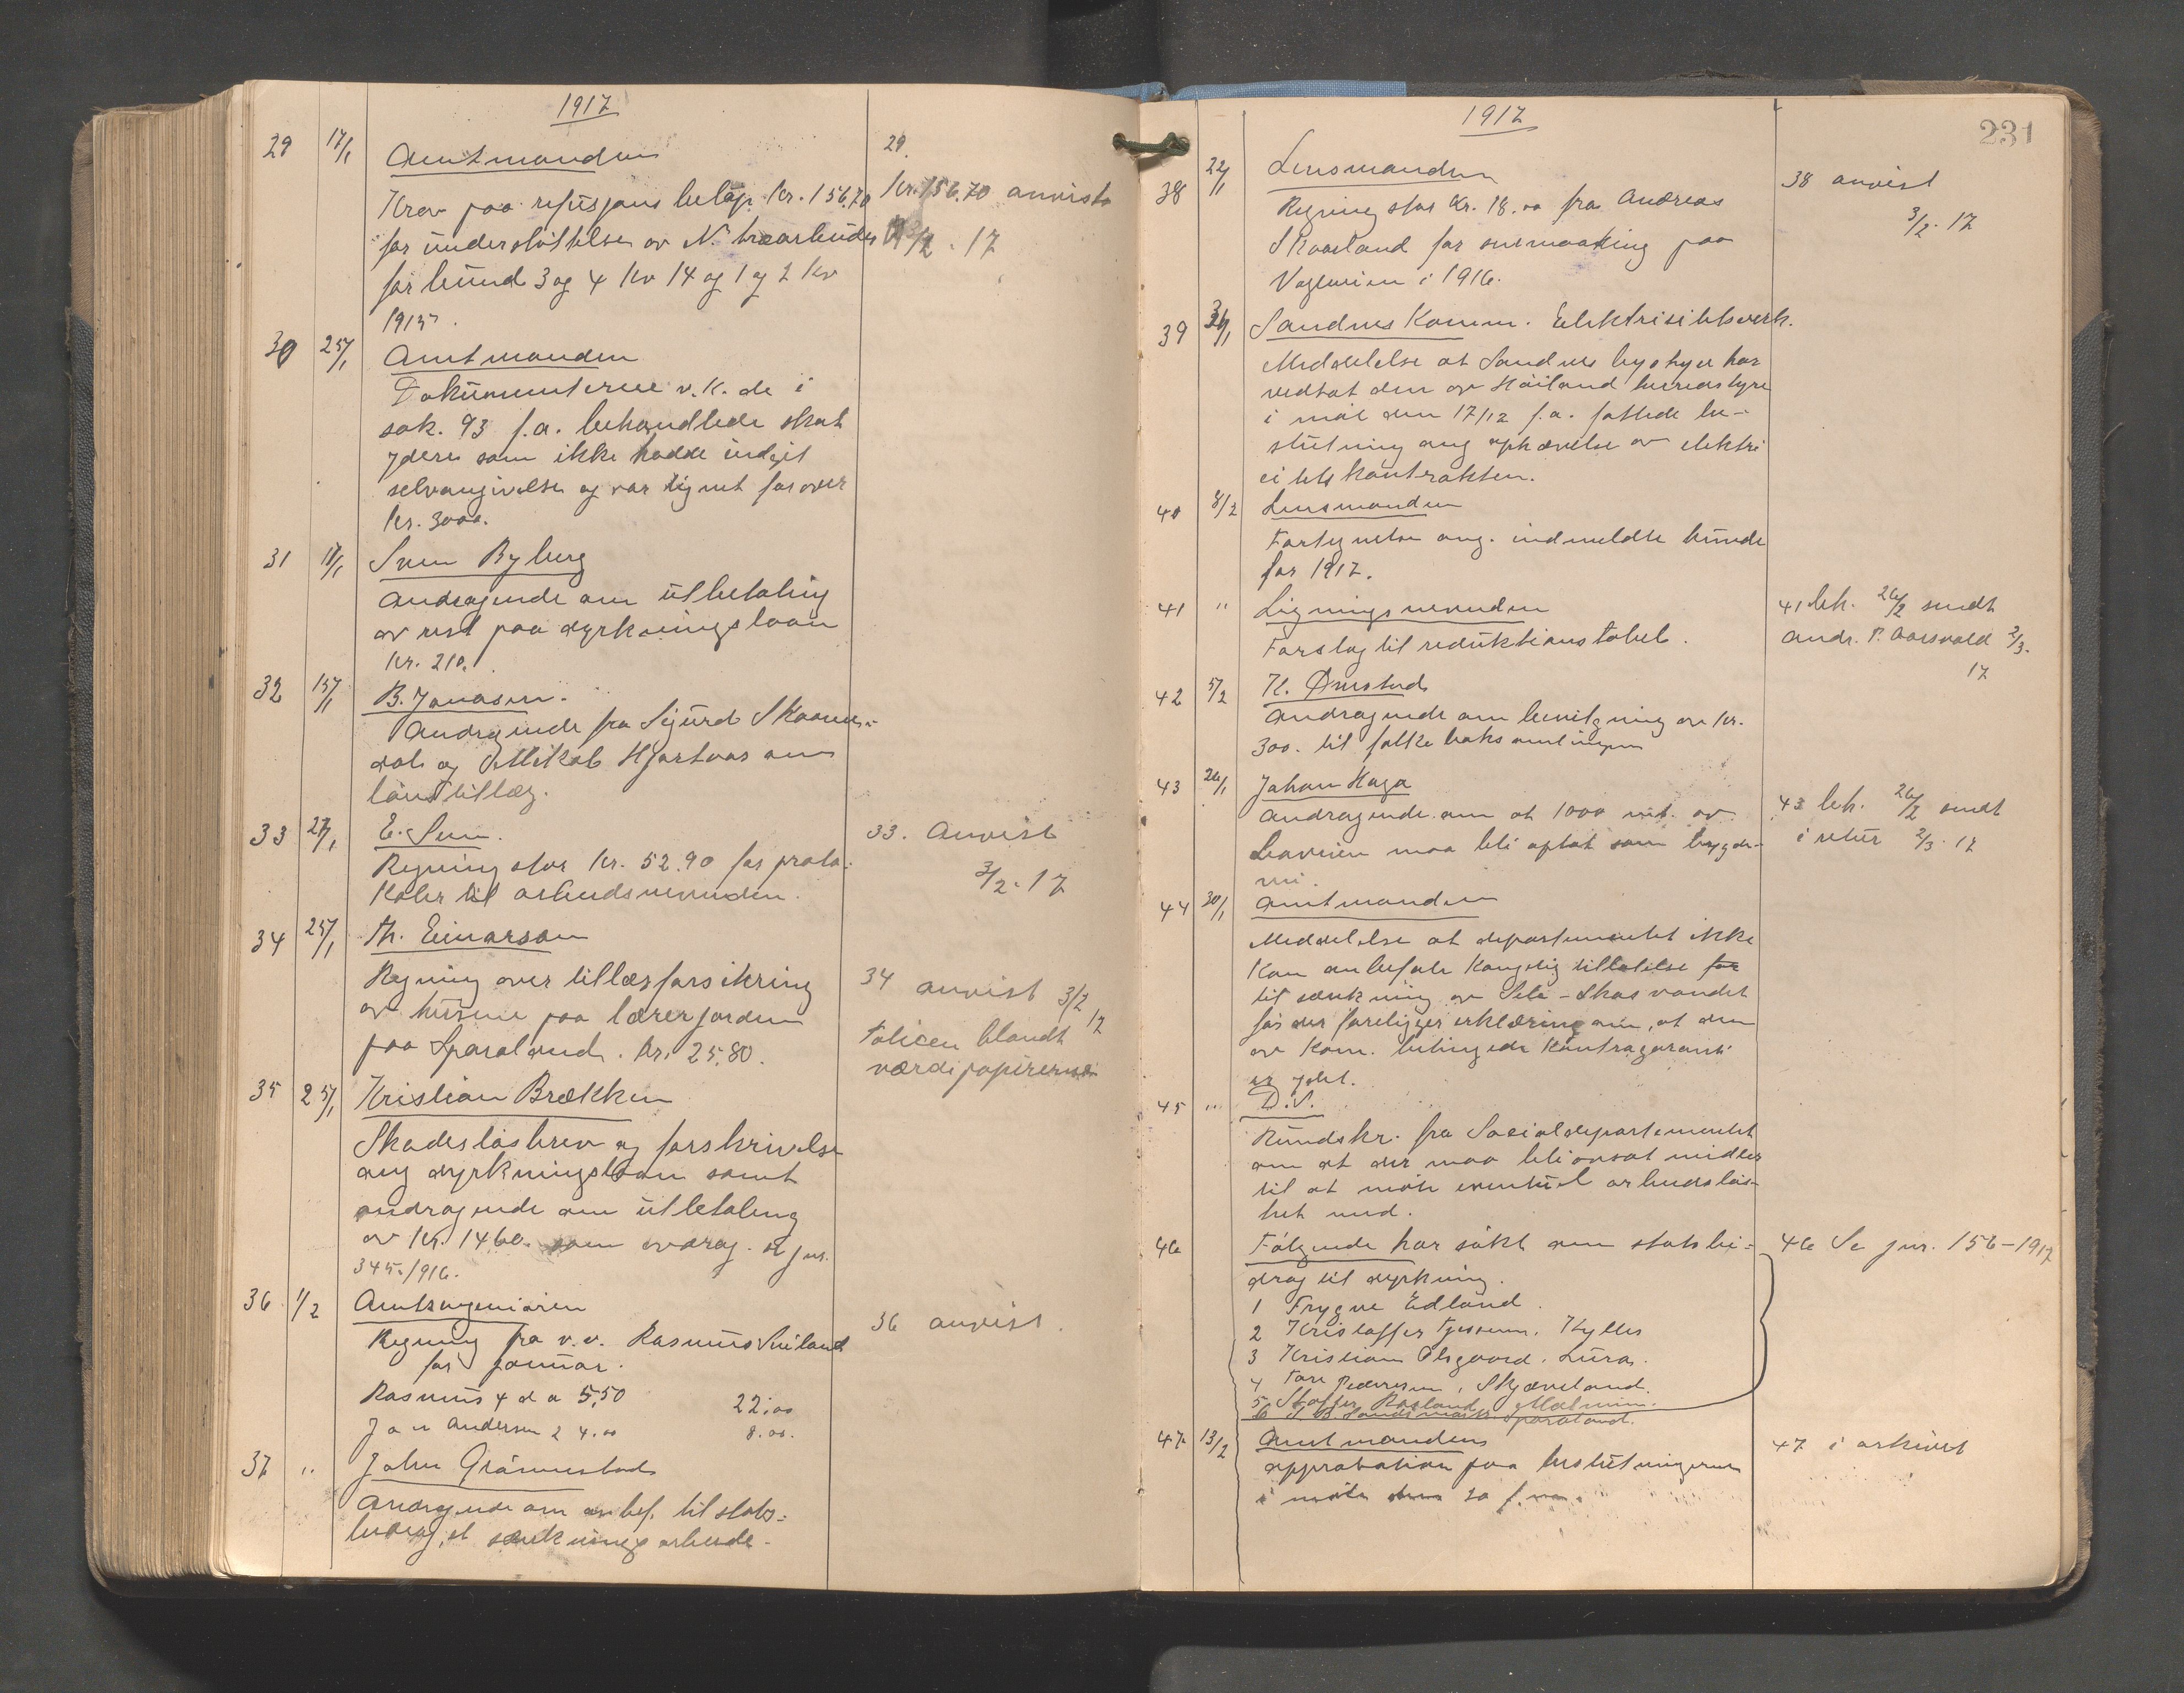 1917
29 17/1 Amtmanden
29.
Krav paa refusjons beløp kr. 156,70
kr. 156,70 anvist
for understøttelse av N. træarbeider
3/2. 17
forbund 3 og 4 kv 14 og 1 og 2 kv
1915.
30 25/1 Amtmanden
Dokumenterne v.k. de i
sak. 93 f.a. behandlede skat
ydere som ikke hadde indgit
selvangivelse og var lignet for over
kr. 3000.
31 18/1 Sven Byberg
Andragende om utbetaling
av rest paa dyrkningslaan
kr. 210.
32 15/1 B. Jonasen.
Andragende fra Sigurd Skaare-
dal og Mikal Hjortaas om
lønstillæg.
33 27/1 E. Sem.
33. Anvist
Regning stor kr. 52.90 for proto-
3/2. 17
koler til arbeidsnevnden.
34 25/1 Th. Einarson
Regning over tillægsforsikring
34 anvist 3/2 17
av husene paa lærerjorden
Policen blandt
paa Sporaland. kr. 25,80.
værdipapirerne
35 25/1 Kristian Brækken
Skadesløsbrev og forskrivelse
ang dyrkningslaan samt
andragende om utbetaling
av kr. 1460. som avdrag. se jnr.
345./916.
36 1/2 Amtsingeniøren
36 anvist.
Regning fra v.v. Rasmus Sviland
for januar.
Rasmus 4 d a 5,50 22.00
Jon Andersen 2 4.00 8.00.
37 " John Grannestad
Andragende om anbef. til stats-
bidrag til sænkningsarbeide.
1917
231
38 22/1 Lensmanden
38 anvist
Regning stor kr. 18.00 fra Andreas
3/2. 17
Skaarland for snemaaking paa
Vagleveien i 1916.
39 31/1 Sandnes Komm. Elektrisitetsverk.
Meddelelse at Sandnes bystyre har
vedtat den av Høiland herredstyre
i møte den 17/12 f.a. fattede be-
slutning ang ophævelse av elektri
citetskontrakten.
40 8/2 Lensmanden
Fortegnelse ang. indmeldte hunde
for 1917.
41 " Ligningsnevnden
41 beh. 26/2 sendt
Forslag til reduktionstabel.
Andr. P. Aarsvold 2/3.
17
42 5/2 K. Ømstad
Andragende om bevilgning av kr.
300. til folkeboksamlingen
43 26/1 Johan Haga
43 beh. 26/2 sendt
Andragende om at 1000 mt. av
i retur 2/3. 17
veien maa bli optat som bygde-
vei.
44 30/1 Amtmanden
Meddelelse at departementet ikke
kan anbefale kongelig tillatelse for
til sænkning av Sele-Skas vandet
før der foreligger erklæring om, at den
av kom. betingede kontragaranti
er ydet.
45 " D.S.
Rundskr. fra Socialdepartementet
om at der maa bli avsat midler
til at møte eventuel arbeidsløs-
het med.
46 Følgende har søkt om statsbi-
46 Se jnr. 156-1917
drag til dyrkning.
1 Trygve Edland.
2 Kristoffer Tjessem. Kylles
3 Kristian Ølsgaard. Lura.
4 Tore Pedersen, Skjæveland.
5 Staffer Rosland Malmin.
6 Sporaland.
47 13/2 Amtmandens
47 i arkivet
approbation paa beslutningerne
i møte den 20 f.m.